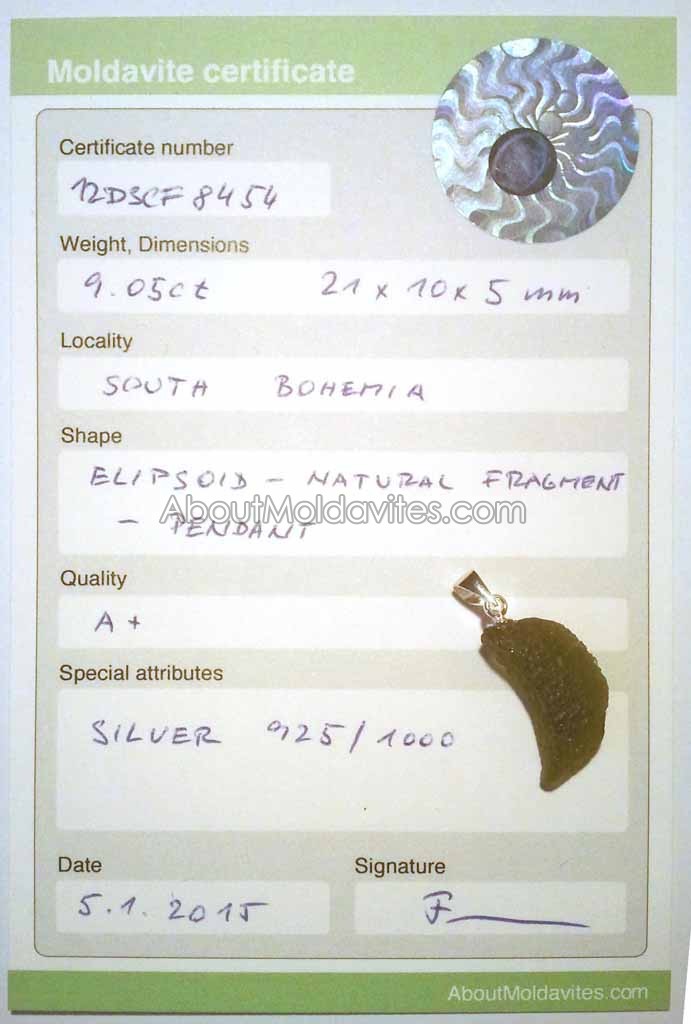 Moldavite certificate
Certificate number
12DSCF8454
Weight, Dimensions
9.05ct 21 x 10 x 5 mm
Locality
SOUTH BOHEMIA
Shape
ELIPSOID - NATURAL FRAGMENT
AboutMoldavites.com
- PENDANT
Quality
A+
Special attributes
SILVER 925/1000
Date Signature
5.1.2015
AboutMoldavites.com